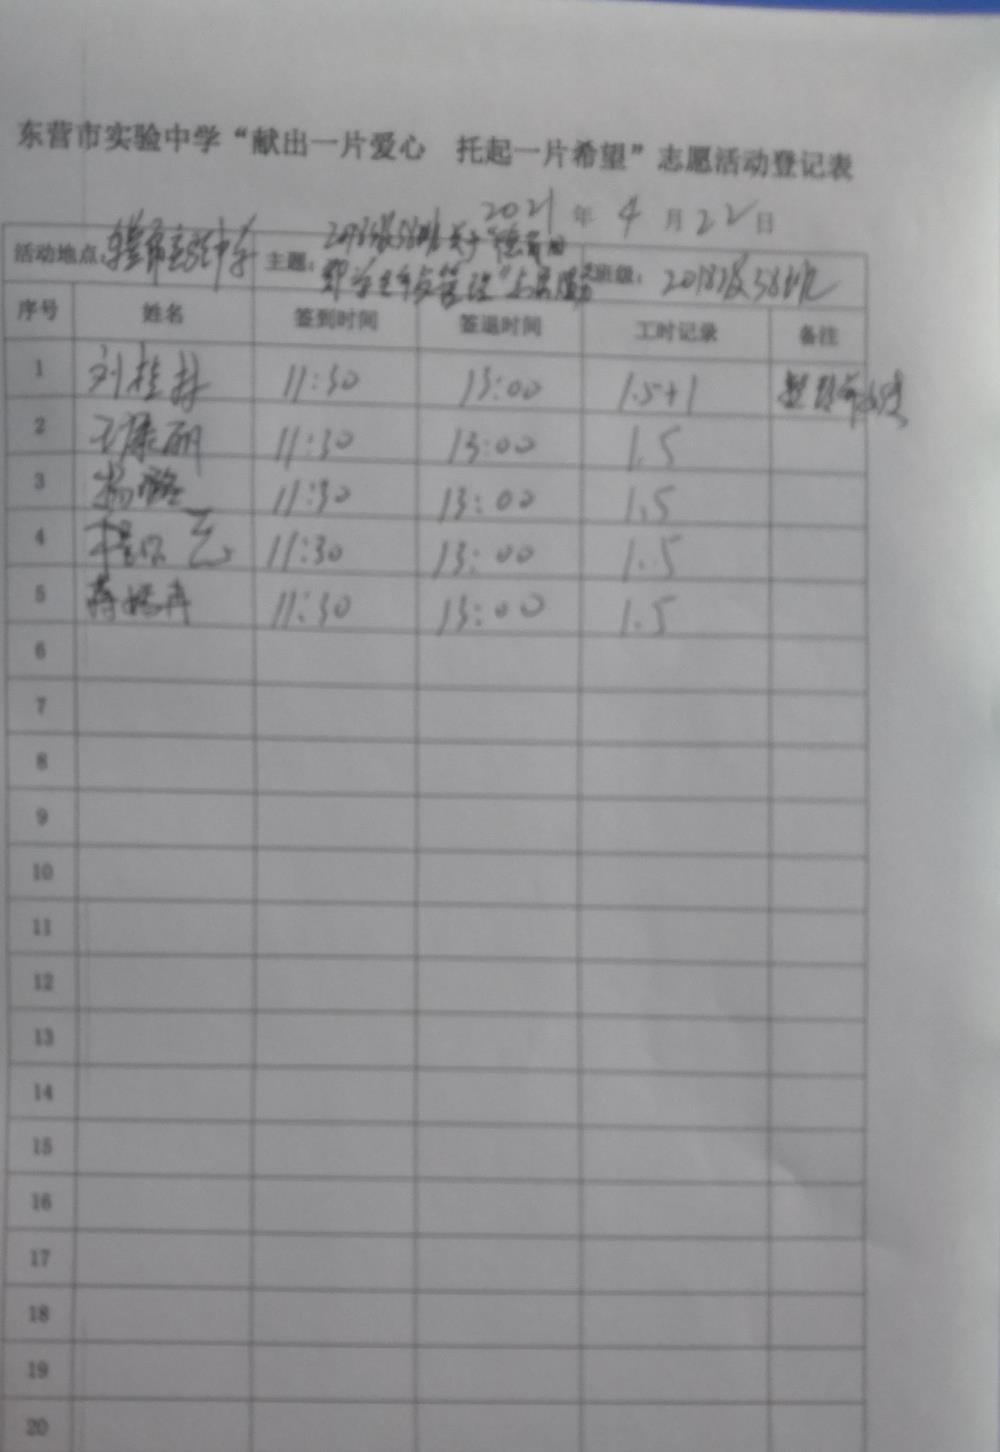 东营市实验中学“献出一片爱心 托起一片希望”志愿活动登记表
2021年4月22日
活动地点：东营市实验中学 主题：2018级38班关于 班级：2018级38班
序号 姓名 签到时间 签退时间 工时记录 备注
1 刘桂林 11:30 13:00 1.5+1
2 王康丽 11:30 13:00 1.5
3 杨璐 11:30 13:00 1.5
4 程 艺 11:30 13:00 1.5
5 蒋 冉 11:30 13:00 1.5
6
7
8
9
10
11
12
13
14
15
16
17
18
19
20